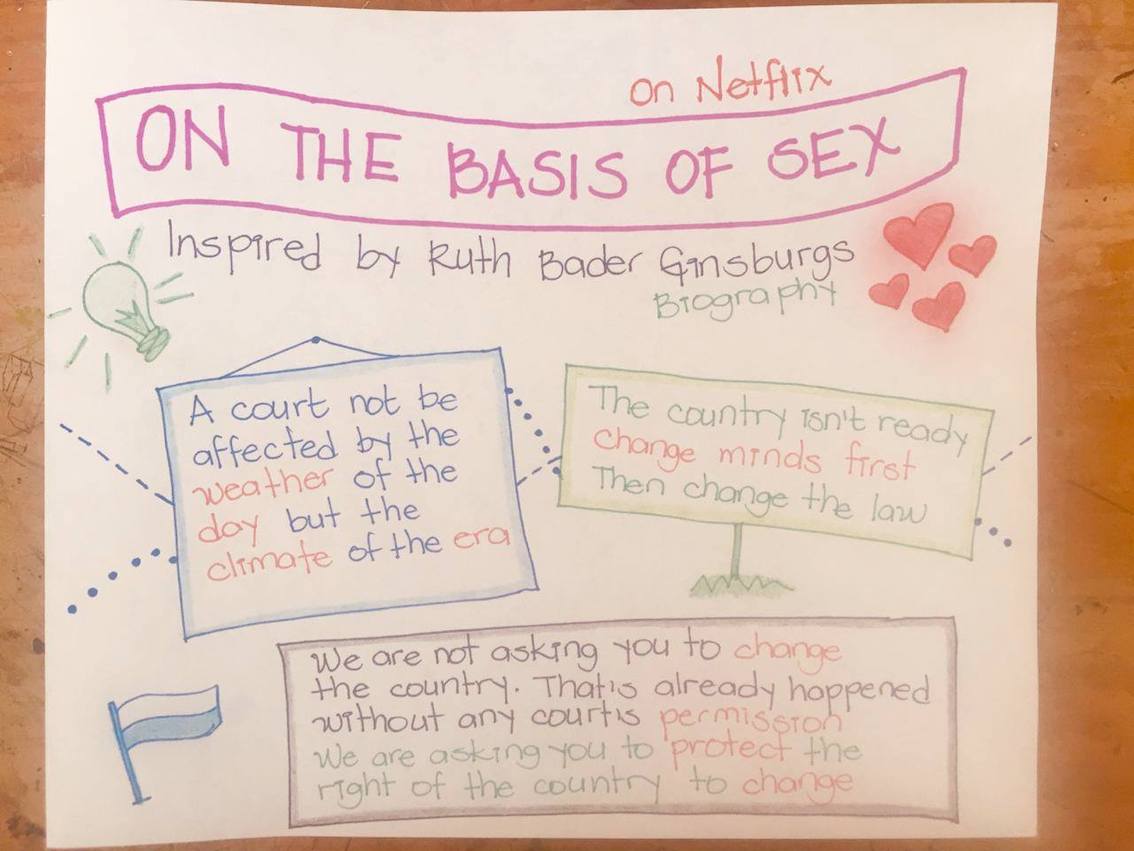 on Netflix
ON THE BASIS OF SEX
Inspired by Ruth Bader Ginsburgs
Biography
A court not be
affected by the
weather of the
day but the
climate of the era
The country isn't ready
change minds first
Then change the law
We are not asking you to change
the country. That's already happened
without any court's permission
We are asking you to protect the
right of the country to change